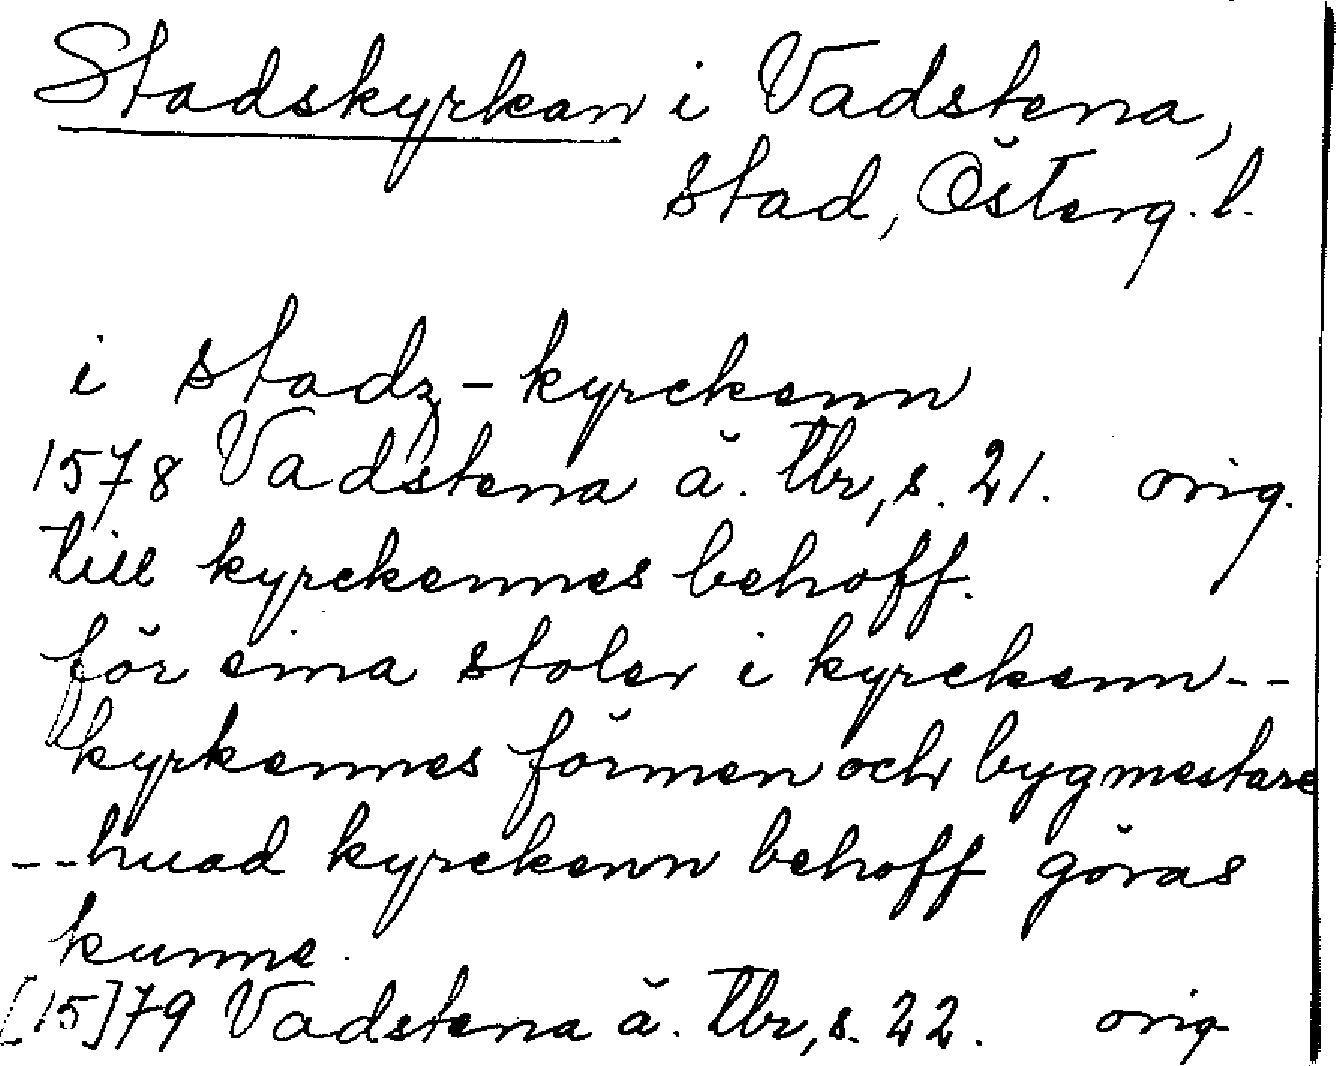 Stadskyrkan i Vadstena,
stad, Österg. l.
i stadz-kyrckenn
1578 Vadstena ä. tbr, s. 21. orig.
till kyrckennes behoff.
för eina stoler i kyrckenn--
kyrkennes förmen och bygmestare
--huad kyrckenn behoff göras
kunne.
[15]79 Vadstena ä. tbr, s. 22. orig